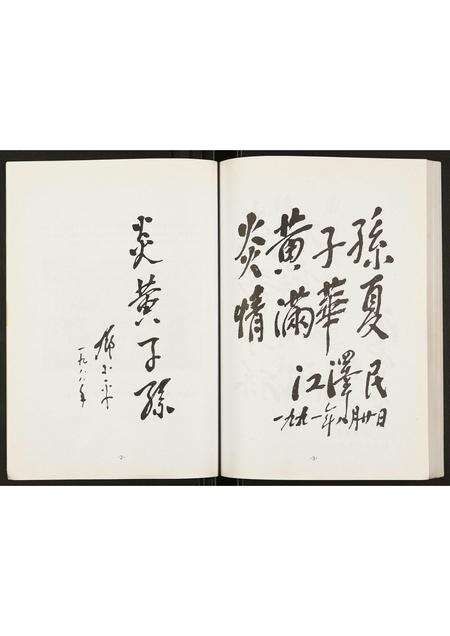 炎黄子孫
鄧小平
一九八八年
-2-
炎黄子孫
情滿華夏
江澤民
一九九一年八月廿日
-3-